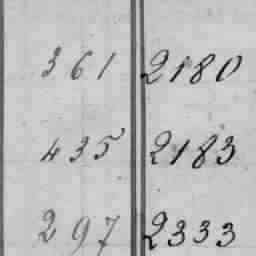 361 2180
435 2183
297 2333